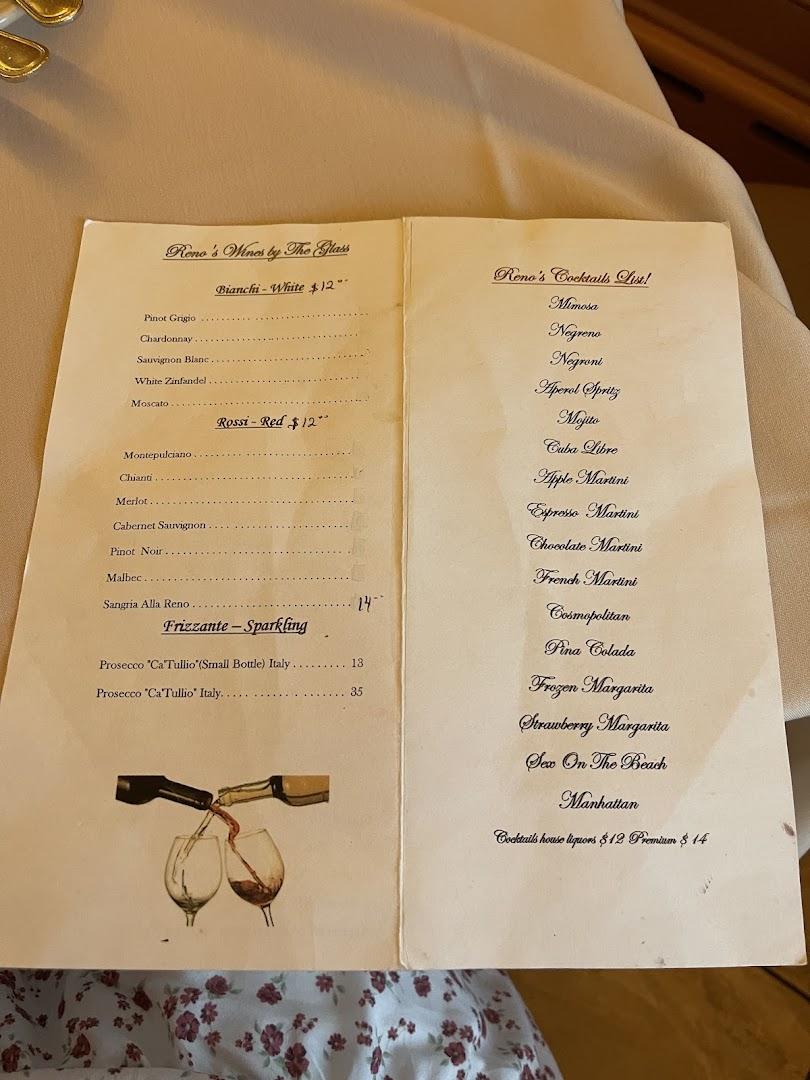 Reno's Wines by The Glass
Bianchi - White $12.00
Pinot Grigio ..............................
Chardonnay ..............................
Sauvignon Blanc ..............................
White Zinfandel ..............................
Moscato ..............................
Rossi - Red $12.00
Montepulciano ..............................
Chianti ..............................
Merlot ..............................
Cabernet Sauvignon ..............................
Pinot Noir ..............................
Malbec ..............................
Sangria Alla Reno .............................. 14--
Frizzante – Sparkling
Prosecco "Ca'Tullio"(Small Bottle) Italy ......... 13
Prosecco "Ca'Tullio" Italy. . . . . . . . . . . . . . . . 35
Reno's Cocktails List!
Mimosa
Negreno
Negroni
Aperol Spritz
Mojito
Cuba Libre
Apple Martini
Espresso Martini
Chocolate Martini
French Martini
Cosmopolitan
Pina Colada
Frozen Margarita
Strawberry Margarita
Sex On The Beach
Manhattan
Cocktails house liquors $12 Premium $ 14